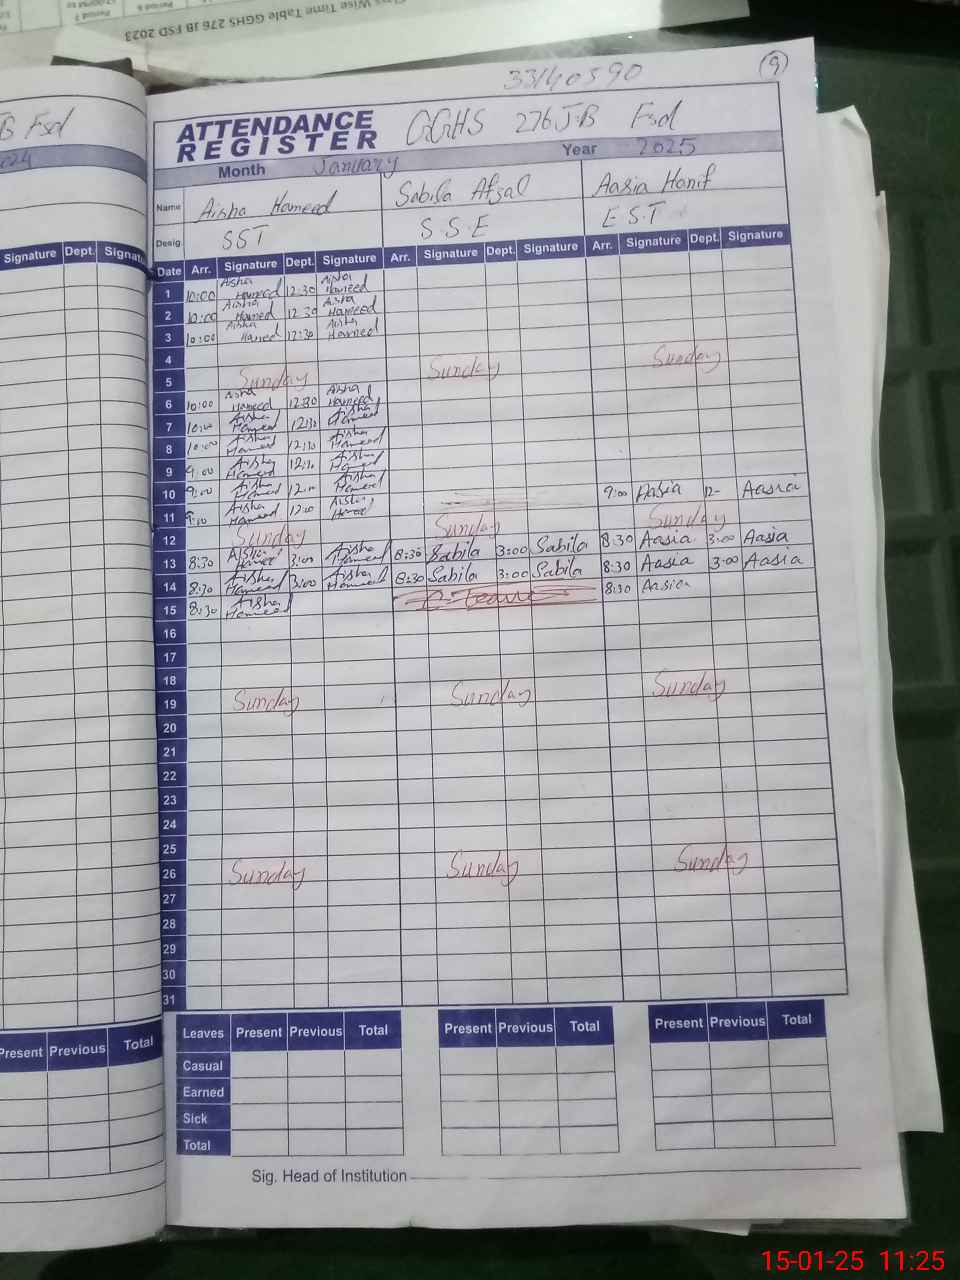 Class Wise Time Table GGHS 276 JB FSD 2023
Period 6
Period 7
33140590
9
B Fsd
2024
ATTENDANCE REGISTER GGHS 276 J-B Fsd
Month January Year 2025
Name Aisha Hameed Sabila Afzal Aasia Hanif
Desig. SST S.S.E E.S.T
Signature Dept. Signature
Date Arr. Signature Dept. Signature Arr. Signature Dept. Signature Arr. Signature Dept. Signature
1 10:00 Aisha Hameed 12:30 Aisha Hameed
2 10:00 Aisha Hameed 12:30 Aisha Hameed
3 10:00 Aisha Hameed 12:30 Aisha Hameed
4
5 Sunday Sunday Sunday
6 10:00 Aisha Hameed 12:30 Aisha Hameed
7 10:00 Aisha Hameed 12:30 Aisha Hameed
8 10:00 Aisha Hameed 12:30 Aisha Hameed
9 9:00 Aisha Hameed 12:30 Aisha Hameed
10 9:00 Aisha Hameed 12:00 Aisha Hameed 9:00 Aasia 12- Aasia
11 9:00 Aisha Hameed 12:00 Aisha Hameed
12 Sunday Sunday Sunday
13 8:30 Aisha Hameed 3:00 Aisha Hameed 8:30 Sabila 3:00 Sabila 8:30 Aasia 3:00 Aasia
14 8:30 Aisha Hameed 3:00 Aisha Hameed 8:30 Sabila 3:00 Sabila 8:30 Aasia 3:00 Aasia
15 8:30 Aisha Hameed C-Leave 8:30 Aasia
16
17
18
19 Sunday Sunday Sunday
20
21
22
23
24
25
26 Sunday Sunday Sunday
27
28
29
30
31
Present Previous Total
Leaves Present Previous Total Present Previous Total Present Previous Total
Casual
Earned
Sick
Total
Sig. Head of Institution
15-01-25 11:25